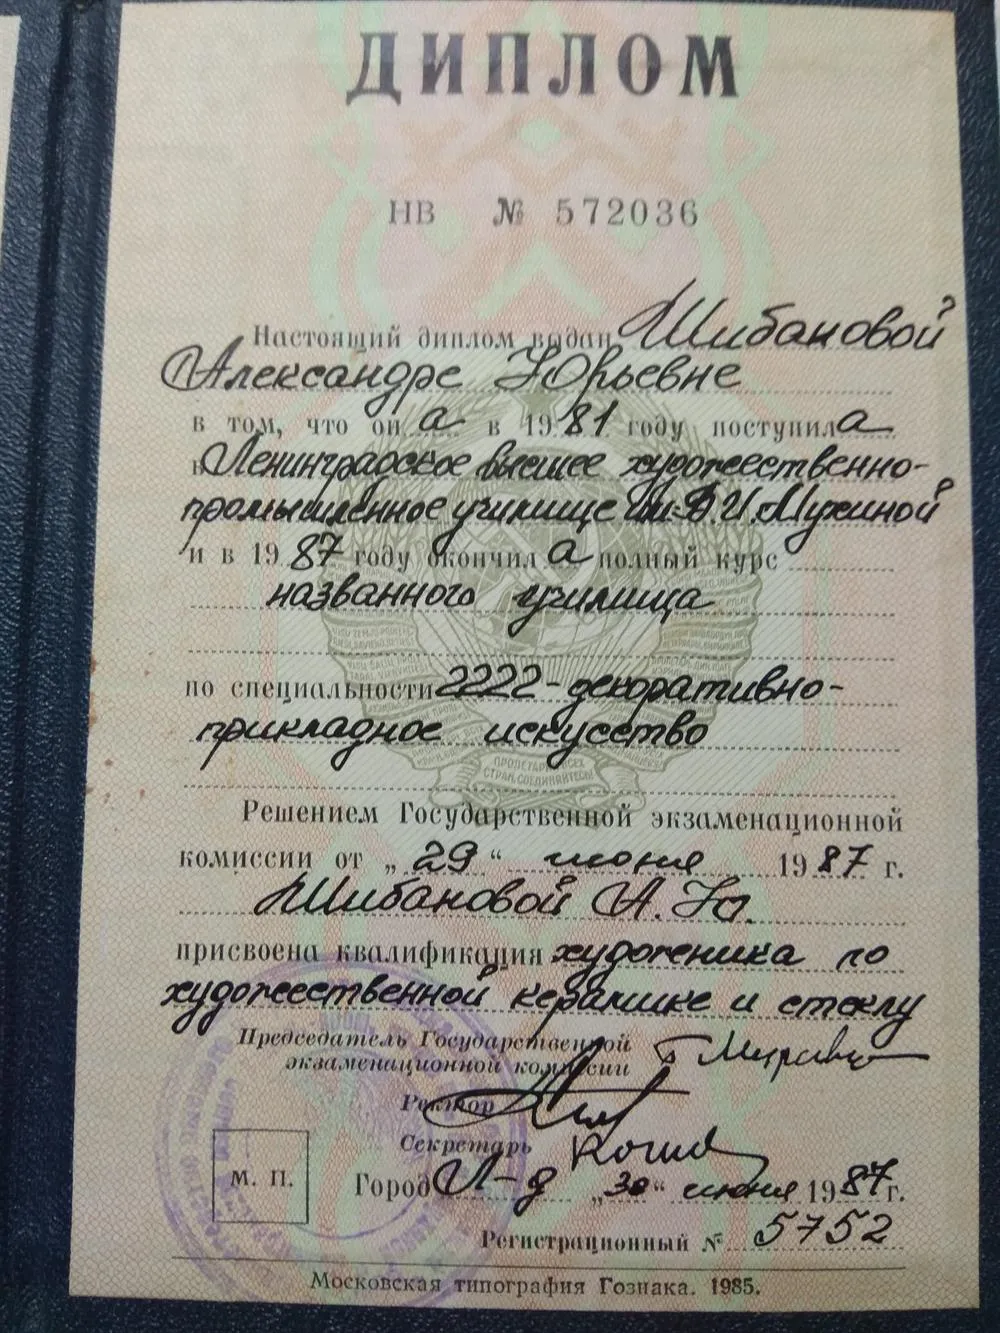 ДИПЛОМ
НВ № 572036
Настоящий диплом выдан Шибановой
Александре Юрьевне
в том, что он а в 1981 году поступила
в Ленинградское высшее художественно-
промышленное училище им. В.И. Мухиной
и в 1987 году окончил а полный курс
названного училища
по специальности 2222-декоративно-
прикладное искусство
Решением Государственной экзаменационной
комиссии от „29“ июня 1987 г.
Шибановой А. Ю.
присвоена квалификация художника по
художественной керамике и стеклу
Председатель Государственной
экзаменационной комиссии
Ректор
Секретарь
М. П.
Город Л-д „30“ июня 1987 г.
Регистрационный № 5752
Московская типография Гознака. 1985.